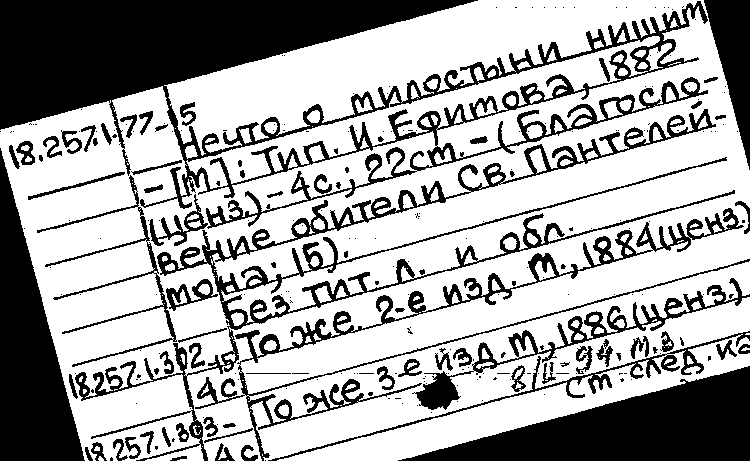 18.257.1.77-15
Нечто о милостыни нищим
.- [М.]: Тип. И. Ефимова, 1882
(ценз.).- 4с.; 22см. - (Благосло-
вение обители Св. Пантелей-
мона; 15).
Без тит. л. и обл.
То же. 2-е изд. М., 1884(ценз.)
18.257.1.302-15
4с.
То же. 3-е изд. М., 1886(ценз.)
18.257.1.303-
4с.
8/II-94. м.з.
см. след. ка